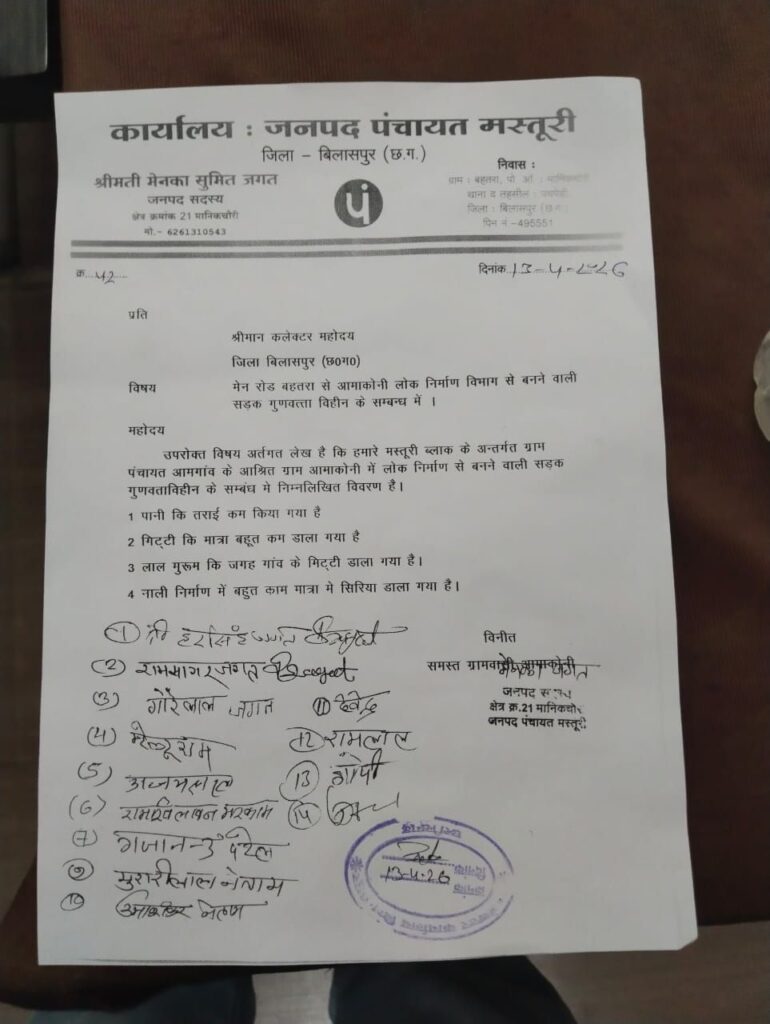 कार्यालय : जनपद पंचायत मस्तूरी
जिला – बिलासपुर (छ.ग.)
श्रीमती मेनका सुमित जगत
जनपद सदस्य
क्षेत्र क्रमांक 21 मानिकचौरी
मो.- 6261310543
पं
निवास :
ग्राम : बहतरा, पो. ऑ. : मानिकचौरी
थाना व तहसील : पचपेड़ी
जिला : बिलासपुर (छ.ग.)
पिन नं -495551
क्र....42....
दिनांक..13-4-2026
प्रति
श्रीमान कलेक्टर महोदय
जिला बिलासपुर (छ0ग0)
विषय मेन रोड बहतरा से आमाकोनी लोक निर्माण विभाग से बनने वाली
सड़क गुणवत्ता विहीन के सम्बन्ध में ।
महोदय
उपरोक्त विषय अर्तगत लेख है कि हमारे मस्तूरी ब्लाक के अन्तर्गत ग्राम
पंचायत आमगांव के आश्रित ग्राम आमाकोनी में लोक निर्माण से बनने वाली सड़क
गुणवताविहीन के सम्बंध मे निम्नलिखित विवरण है।
1 पानी कि तराई कम किया गया है
2 मिट्टी कि मात्रा बहूत कम डाला गया है
3 लाल मुरूम कि जगह गांव के मिट्टी डाला गया है।
4 नाली निर्माण में बहुत काम मात्रा मे सिरिया डाला गया है।
विनीत
समस्त ग्रामवासी आमाकोनी
जनपद सदस्य
क्षेत्र क्र.21 मानिकचौरी
जनपद पंचायत मस्तूरी
(1) श्री हरसिंह जगत
(2) रामसागर जगत
(3) गोरेलाल जगत
(11) देवेन्द्र
(4) राम
12 रामलाल
(5)
(13) गोपी
(6) रामखिलावन मरकाम
(14)
(7) गजानन्द पटेल
मुरारीलाल नेताम
(10)
13-4-26